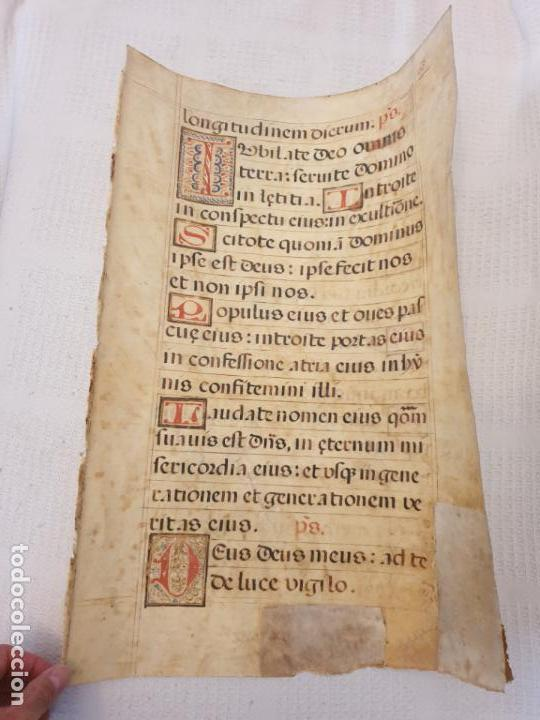 longitudinem dierum. ps.
Iubilate deo omnis
terra: seruite domino
in lętitia. Introite
in conspectu eius: in exultiōne.
Scitote quoniā dominus
ipse est deus: ipse fecit nos
et non ipsi nos.
Populus eius et oues pas
cuę eius: introite portas eius
in confessione atria eius in hȳ
nis confitemini illi.
Laudate nomen eius qōm
suauis est dn̄s, in ęternum mi
sericordia eius: et usq; in gene
rationem et generationem ve
ritas eius. ps.
Deus deus meus: ad te
de luce vigilo.
todocoleccion